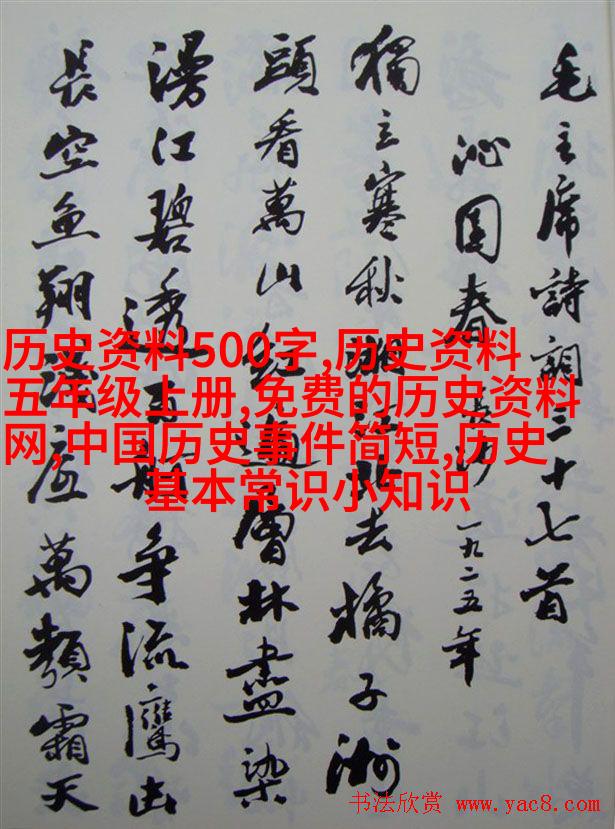 毛主席詩詞三十七首
沁园春 長沙 一九二五年
獨立寒秋湘江北去橘子洲
頭看萬山紅遍層林盡染
漫江碧透百舸争流鷹击
長空魚翔淺底萬類霜天
历史资料500字,历史资料
五年级上册,免费的历史资料
网,中国历史事件简短,历史
基本常识小知识
书法欣赏 www.yac8.com